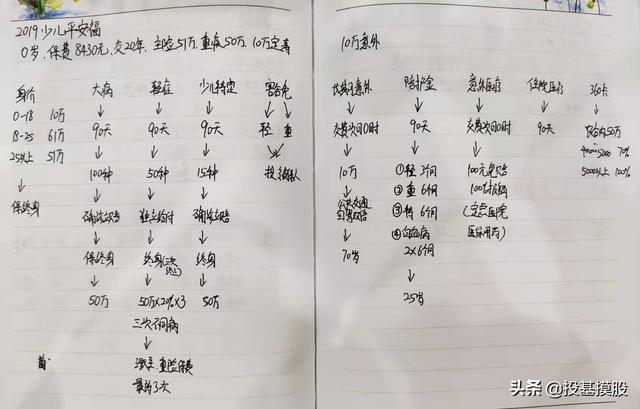 2019少儿平安福
0岁, 保费8430元, 交20年, 主险51万, 重疾50万, 10万定寿
身价 大病 轻症 少儿特定 豁免
0-18 10万 90天 90天 90天 轻 重
18-25 61万
25以上 51万
100种 50种 15种 投
保终身
确诊 独立给付 确诊
保终身 终身(三次终止) 终身
50万 50万×20%×3 50万
三次不同病
重险保费
最多3次
10万意外
长期意外 陪护金 意外医疗 住院医疗 360卡
交费次日0时 90天 交费次日0时 90天 50万
5000 70%
5000以上 100%
10万 ①轻 3个月 100元免赔
公共交通 ②重 6个月 100%报销
双倍 ③特 6个月 (定点医院
④白血病 医保用药)
70岁 2×6个月
25岁
头条 @投基摸股